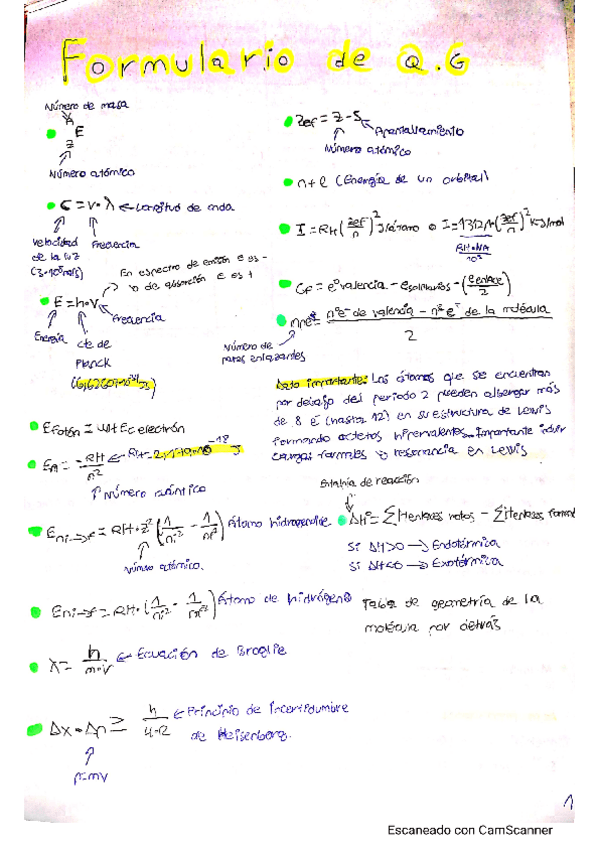 Formulario de Q.G
Número de masa
A
E
Z
Número atómico
C = ν · λ ← Longitud de onda
Velocidad de la luz
(3·10⁸ m/s)
Frecuencia
En espectro de emisión E es -
y de absorción E es +
E = h·ν
Frecuencia
Energía
cte de
Planck
E fotón = W + Ec electrón
En = -RH/n²
Número cuántico
Eni→f = RH·Z² (1/ni² - 1/nf²) Átomo hidrogenoide
Número atómico.
Eni→f = RH·(1/ni² - 1/nf²) Átomo de hidrógeno
λ = h/m·v ← Ecuación de Broglie
Δx · Δp ≥ ← Principio de Incertidumbre
de Heisenberg.
p=mv
Zef = Z - S
Apantallamiento
Número atómico
n + l (Energía de un orbital)
I = RH (Zef/n)² J/átomo o I = 1312 (Zef/n)² KJ/mol
RH·NA
10³
CF = e⁻ valencia - e⁻ solitarios - (e⁻ enlace/2)
nº e⁻ de valencia - nº e⁻ de la molécula
2
Número de
pares enlazantes
Dato importante: Los átomos que se encuentran
por debajo del periodo 2 pueden albergar más
de 8 e⁻ (hasta 12) en su estructura de Lewis
formando octetos hipervalentes. Importante
cargas formales y resonancia en Lewis
Entalpía de reacción
ΔHº = ΣH enlaces rotos - ΣH enlaces
Si ΔH>0 → Endotérmica
Si ΔH<0 → Exotérmica
Tabla de geometría de la
molécula por detrás
1
Escaneado con CamScanner